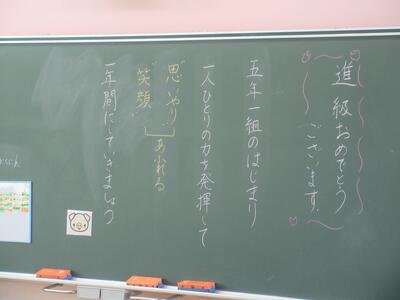 進級おめでとう
ございます。
五年一組のはじまり
一人ひとりの力を発揮して
"思いやり"
"笑顔"
あふれる
一年間にしていきましょう